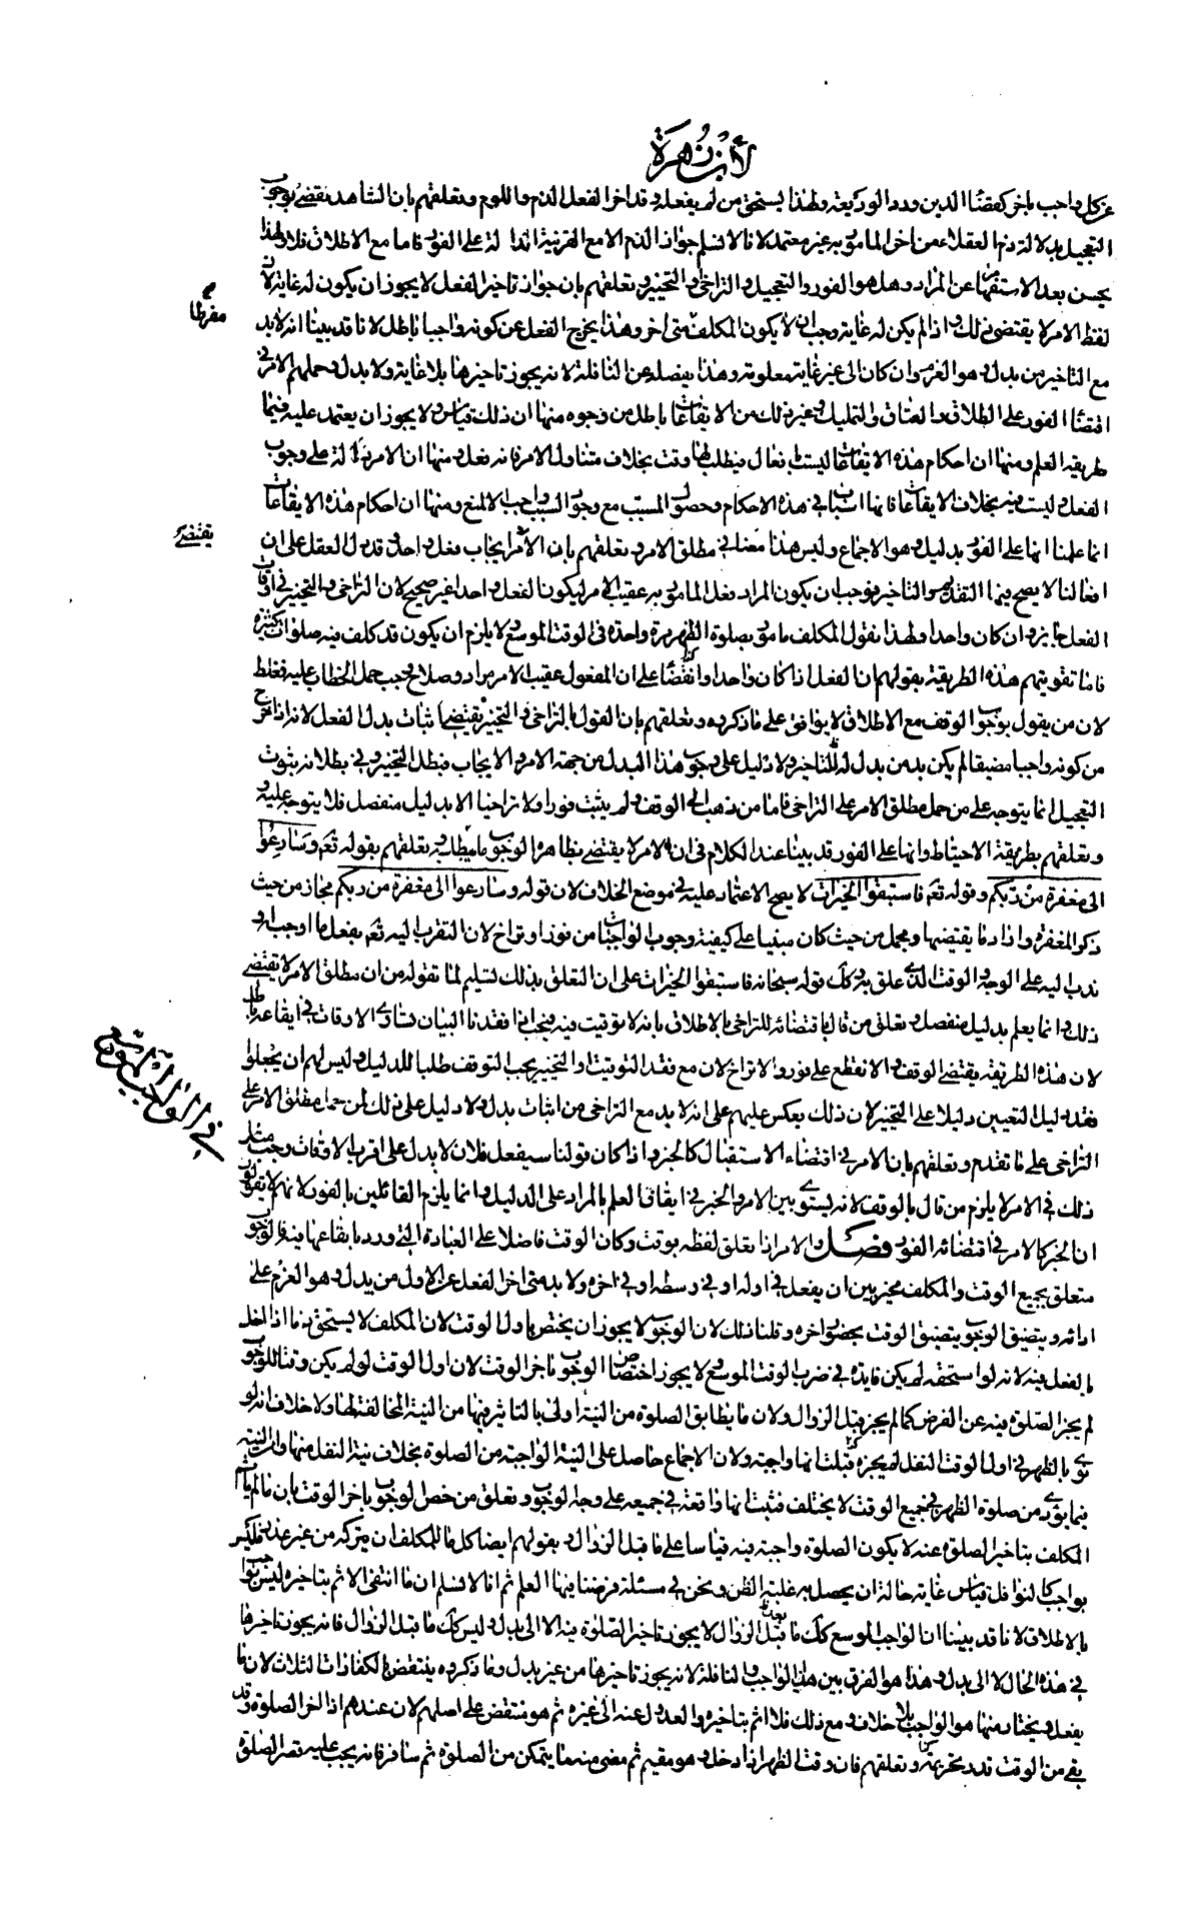 لأبن زهرة
عن كل واجب باخر كقضاء الدين ورد الوديعة ولهذا يستحق من لم يفعله وقد اخر الفعل الذم واللوم وتعلقهم بان الشاهد يقضى بوجوب
التعجيل بدلالة ذم العقلاء من اخر المامور به غير معتمد لانا لا نسلم جواز الذم الا مع القرينة الدالة على الفور فاما مع الاطلاق فلا ولهذا
يحسن بعد الاستفهام عن المراد وهل هو الفور والتعجيل والتراخى والتخيير وتعلقهم بان جواز تاخير الفعل لا يجوز ان يكون له غاية لان
مفرطا
لفظ الامر لا يقتضى ذلك واذا لم يكن له غاية وجب ان لا يكون المكلف متى اخر وهذا يخرج الفعل عن كونه واجبا باطل لانا قد بينا انه لابد
مع التاخير من بدل وهو العزم وان كان الى غير غاية معلومة وهذا يفصله عن النافلة لانه يجوز تاخيرها بلا غاية ولا بدل وحملهم الامر فى
اقتضاء الفور على الطلاق والعتاق والتمليك وغير ذلك من الايقاعات باطل من وجوه منها ان ذلك قياس ولا يجوز ان يعتمد عليه فيما
طريقه العلم ومنها ان احكام هذه الايقاعات ليست بافعال فيطلب لها وقت بخلاف متناول الامر فانه فعل ومنها ان الامر دلالة على وجوب
الفعل وليست فيه بخلاف الايقاعات فانها اسباب فى هذه الاحكام وحصول المسبب مع وجود السبب واجب الا لمنع ومنها ان احكام هذه الايقاعات
يقتضى
انما علمنا انها على الفور بدليل وهو الاجماع وليس هذا معنا فى مطلق الامر وتعلقهم بان الامر ايجاب فعل واحد وقد دل العقل على ان
افعالنا لا يصح فيها التقديم والتاخير فوجب ان يكون المراد فعل المامور به عقيب الامر ليكون الفعل واحدا غير صحيح لان التراخى والتخيير فى اوقات
الفعل جايز وان كان واحدا ولهذا نقول المكلف مامور بصلوة الظهر مرة واحدة فى الوقت الموسع ولا يلزم ان يكون قد كلف فيه صلوات كثيرة
فاما تقويتهم هذه الطريقة بقولهم ان الفعل اذا كان واحدا واتفقنا على ان المفعول عقيب الامر مراد وصلاح وجب حمل الخطاب عليه فغلط
لان من يقول بوجوب الوقف مع الاطلاق لا يوافق على ما ذكروه وتعلقهم بان القول بالتراخى والتخيير يقتضيها ثبات بدل الفعل لانه اذا خرج
من كونه واجبا مضيقا لم يكن بد من بدل له للتاخير ولا دليل على وجوب هذا البدل من جهة الامر والايجاب فبطل التخيير وفى بطلانه ثبوت
التعجيل انما يتوجه على من حمل مطلق الامر على التراخى فاما من ذهب الى الوقف ولم يثبت فورا ولا تراخيا الا بدليل منفصل فلا يتوجه عليه
وتعلقهم بطريقة الاحتياط وانها على الفور قد بينا عند الكلام فى ان الامر لا يقتضى بظاهره الوجوب ما يبطله وتعلقهم بقوله تعم وسارعوا
الى مغفرة من ربكم وقوله تعم فاستبقوا الخيرات لا يصح الاعتماد عليه فى موضع الخلاف لان قوله وسارعوا الى مغفرة من ربكم مجاز من حيث
ذكر المغفرة واراد ما يقتضيها ومجمل من حيث كان مبنيا على كيفية وجوب الواجبات من فور او تراخ لان التقرب اليه تعم بفعل ما اوجب او
ندب اليه على الوجه والوقت الذى علق به وكك قوله سبحانه فاستبقوا الخيرات على ان التعلق بذلك تسليم لما نقوله من ان مطلق الامر لا يقتضى
ذلك وانما يعلم بدليل منفصل وتعلق من قال باقتضائه للتراخى بالاطلاق بانه لا توقيت فيه فيجب اذا فقدنا البيان تساوى الاوقات فى ايقاعه باطل
فى الواجب الموسع
لان هذه الطريقة يقتضى الوقف والا نقطع على فور ولا تراخ لان مع فقد التوقيت والتخيير يجب التوقف طلبا للدليل وليس لهم ان يجعلوا
فقد دليل التعيين دليلا على التخيير لان ذلك يعكس عليهم على انه لابد مع التراخى من اثبات بدل ولا دليل على ذلك لمن حمل مطلق الامر على
التراخى على ما تقدم وتعلقهم بان الامر فى اقتضاء الاستقبال كالخبر واذا كان قولنا سيفعل فلان لا يدل على اقرب الاوقات وجب مثل
ذلك فى الامر لا يلزم من قال بالوقف لانه يستوى بين الامر والخبر فى ايقاف العلم بالمراد على الدليل وانما يلزم القائلين بالفور لانهم لا يقولون
ان الخبر كالامر فى اقتضائه الفور فصل والامر اذا تعلق لفظه بوقت وكان الوقت فاضلا على العبادة التى ورد بايقاعها فيه فالوجوب
متعلق بجميع الوقت والمكلف مخير بين ان يفعل فى اوله او فى وسطه او فى اخره ولابد متى اخر الفعل عن الاول من بدل وهو العزم على
ادائه ويتضيق الوجوب بتضيق الوقت بحضور اخره وقلنا ذلك لان الوجوب لا يجوز ان يختص باول الوقت لان المكلف لا يستحق ذما اذا اخل
بالفعل فيه لانه لو استحقه لم يكن فايدة فى ضرب الوقت الموسع ولا يجوز اختصاص الوجوب باخر الوقت لان اول الوقت لو لم يكن وقتا للوجوب
لم يجز الصلوة فيه عن الفرض كما لم يجز قبل الزوال ولان ما يطابق الصلوة من النية اولى بالتاثير فيها من النية المخالفة لها ولا خلاف انه لو
نوى بالظهر فى اول الوقت النفل لم يجزه فثبت انها واجبة ولان الاجماع حاصل على النية الواجبة من الصلوة بخلاف نية النفل منها وان النية
فيما يؤدى من صلوة الظهر فى جميع الوقت لا يختلف فثبت انها واقعة فى جميعه على وجه الوجوب وتعلق من خص الوجوب باخر الوقت بان ما لم ياثم
المكلف بتاخير الصلوة عنه لا يكون الصلوة واجبة فيه قياسا على ما قبل الزوال وبقولهم ايضا كل ما للمكلف ان يتركه من غير عذر فليس
بواجب كالنوافل قياس غاية حالة ان يحصل به غلبة الظن ونحن فى مسئلة فرضنا فيها العلم ثم انا لا نسلم ان ما انتفى الاثم بتاخيره ليس بواجب
بالاطلاق لانا قد بينا ان الواجب الموسع كك فاما قبل الزوال لا يجوز تاخير الصلوة فيه الا الى بدل وليس كك ما قبل الزوال فانه يجوز تاخيرها
فى هذه الحال لا الى بدل وهذا هو الفرق بين هذا الواجب والنافلة لانه يجوز تاخيرها من غير بدل وما ذكروه ينتقض بالكفارات الثلاث لان ما
يفعل ويختار منها هو الواجب بلا خلاف ومع ذلك فلا اثم بتاخيره والعدول عنه الى غيره ثم هو منتقض على اصلهم لان عندهم اذا اخر الصلوة وقد
بقى من الوقت قدر تحريمة وتعلقهم فان وقت الظهر اذا دخل وهو مقيم ثم مضى منه ما يتمكن من الصلوة ثم سافر فانه يجب عليه قصر الصلوة